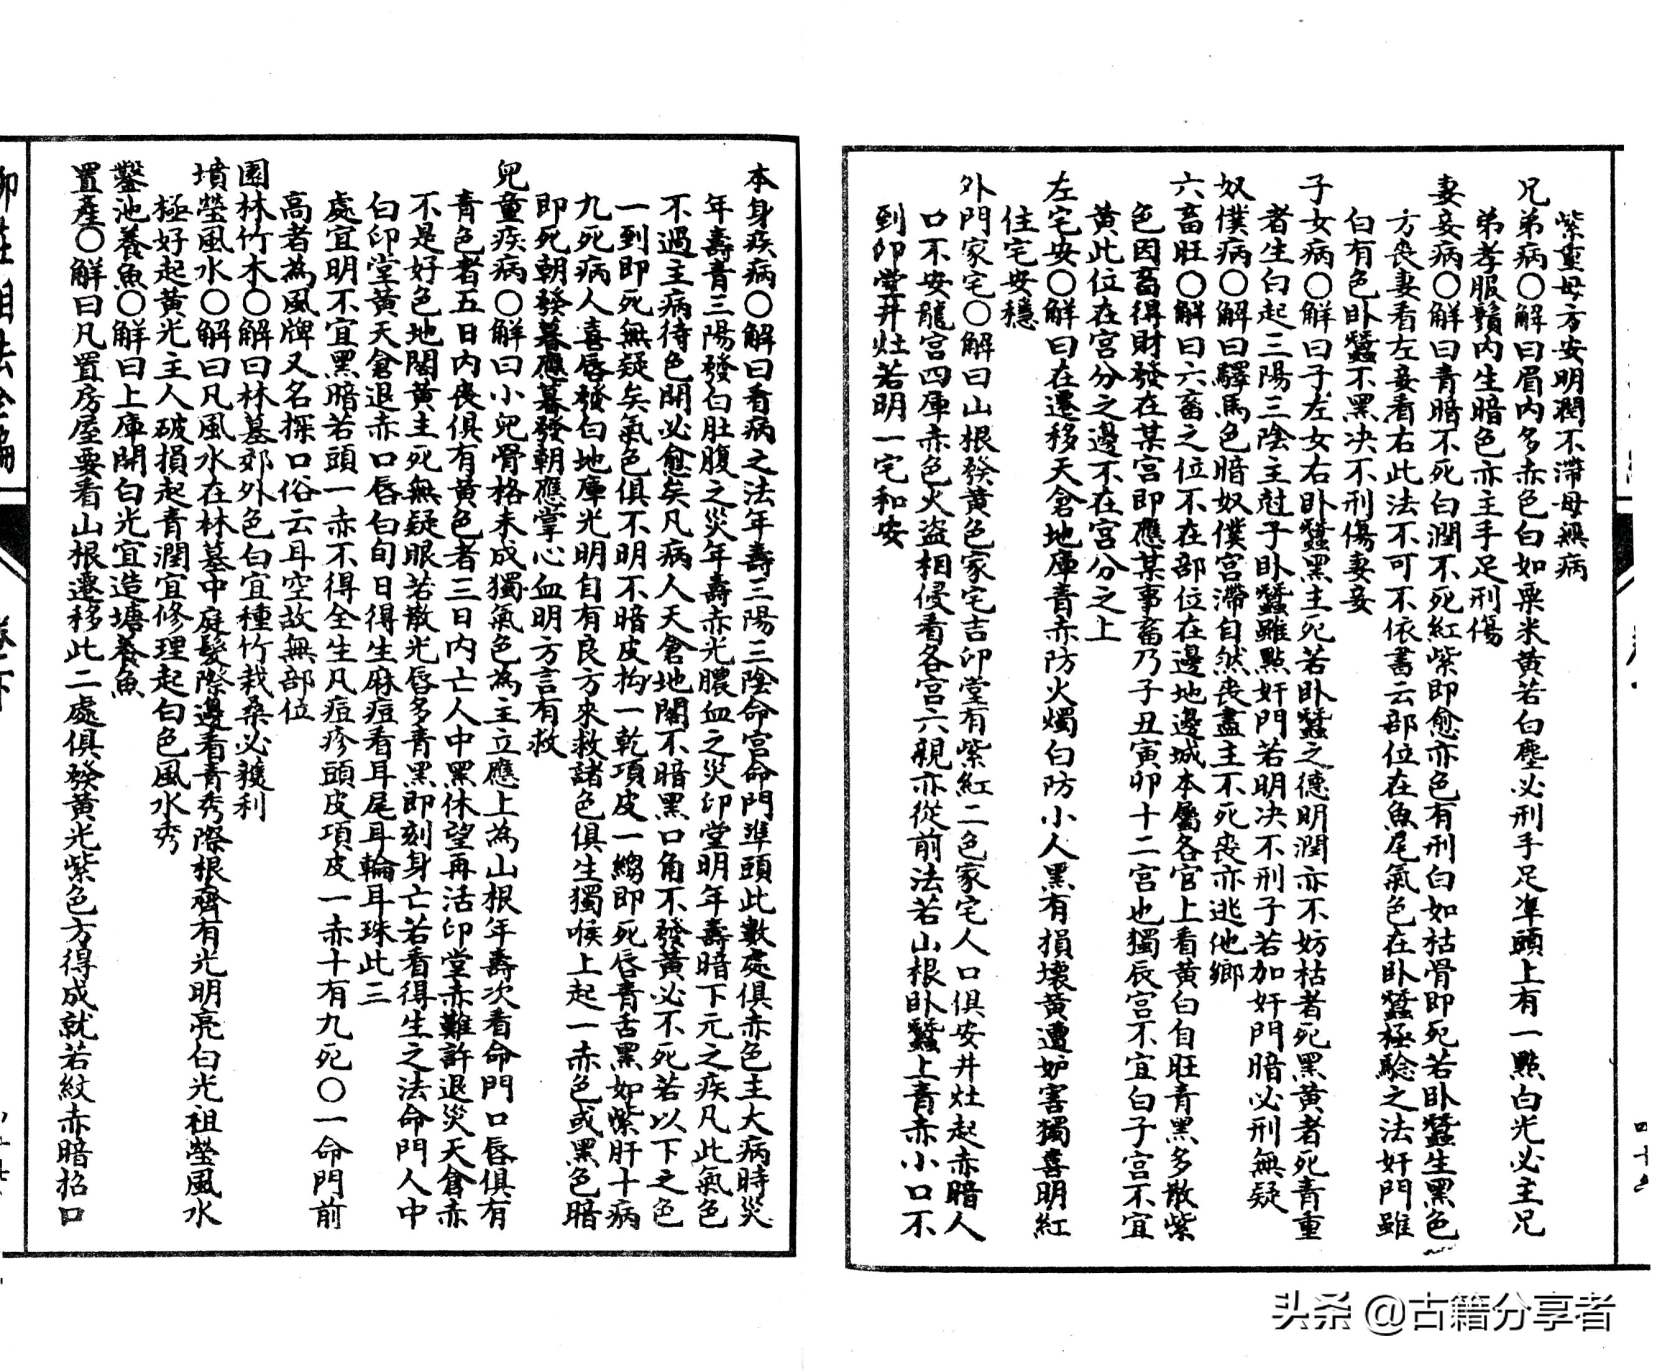 紫重母方安明潤不滯母無病
兄弟病〇解曰眉內多赤色白如粟米黃若白塵必刑手足準頭上有一點白光必主兄
弟孝服鬚內生暗色亦主手足刑傷
妻妾病〇解曰青暗不死白潤不死紅紫即愈亦色有刑白如枯骨即死若卧蠶生黑色
方喪妻看左妾看右此法不可不依書云部位在魚尾氣色在卧蠶極驗之法奸門雖
白有色卧蠶不黑决不刑傷妻妾
子女病〇解曰子左女右卧蠶黑主死若卧蠶之德明潤亦不妨枯者死黑黃者死青重
者生白起三陽三陰主尅子卧蠶雖點奸門若明决不刑子若加奸門暗必刑無疑
奴僕病〇解曰驛馬色暗奴僕宮滯自然喪盡主不死喪亦逃他鄉
六畜旺〇解曰六畜之位不在部位在邊地邊城本屬各官上看黃白自旺青黑多散紫
色因畜得財發在某宮即應某事畜乃子丑寅卯十二宮也獨辰宮不宜白子宮不宜
黃此位在宮分之邊不在宮分之上
左宅安〇解曰在遷移天倉地庫青赤防火燭白防小人黑有損壞黃遭妒害獨喜明紅
住宅安穩
外門家宅〇解曰山根發黃色家宅吉印堂有紫紅二色家宅人口俱安井灶起赤暗人
口不安龍宮四庫赤色火盜相侵看各宮六親亦從前法若山根卧蠶上青赤小口不
到印堂井灶若明一宅和安
本身疾病〇解曰看病之法年壽三陽三陰命宮命門準頭此數處俱赤色主大病時災
年壽青三陽發白肚腹之災年壽赤光膿血之災印堂明年壽暗下元之疾凡此氣色
不過主病待色開必愈矣凡病人天倉地閣不暗黑口角不發黃必不死若以下之色
一到即死無疑矣氣色俱不明不暗皮拘一乾項皮一縐即死唇青舌黑如紫肝十病
九死病人喜唇發白地庫光明自有良方來救諸色俱生獨喉上起一赤色或黑色暗
即死朝發暮應暮發朝應掌心血明方言有救
兒童疾病〇解曰小兒骨格未成獨氣色為主立應上為山根年壽次看命門口唇俱有
青色者五日內喪俱有黃色者三日內亡人中黑休望再活印堂赤難許退災天倉赤
不是好色地閣黃主死無疑眼若散光唇多青黑即刻身亡若看得生之法命門人中
白印堂黃天倉退赤口唇白旬日得生麻痘看耳尾耳輪耳珠此三
處宜明不宜黑暗若頭一赤不得全生凡痘疹頭皮項皮一赤十有九死〇一命門前
高者為風牌又名探口俗云耳空故無部位
園林竹木〇解曰林墓郊外色白宜種竹栽桑必獲利
墳塋風水〇解曰凡風水在林墓中庭髮際邊看青秀際根齊有光明亮白光祖塋風水
極好起黃光主人破損起青潤宜修理起白色風水秀
鑿池養魚〇解曰上庫開白光宜造塘養魚
置產〇解曰凡置房屋要看山根遷移此二處俱發黃光紫色方得成就若紋赤暗招口
头条 @古籍分享者